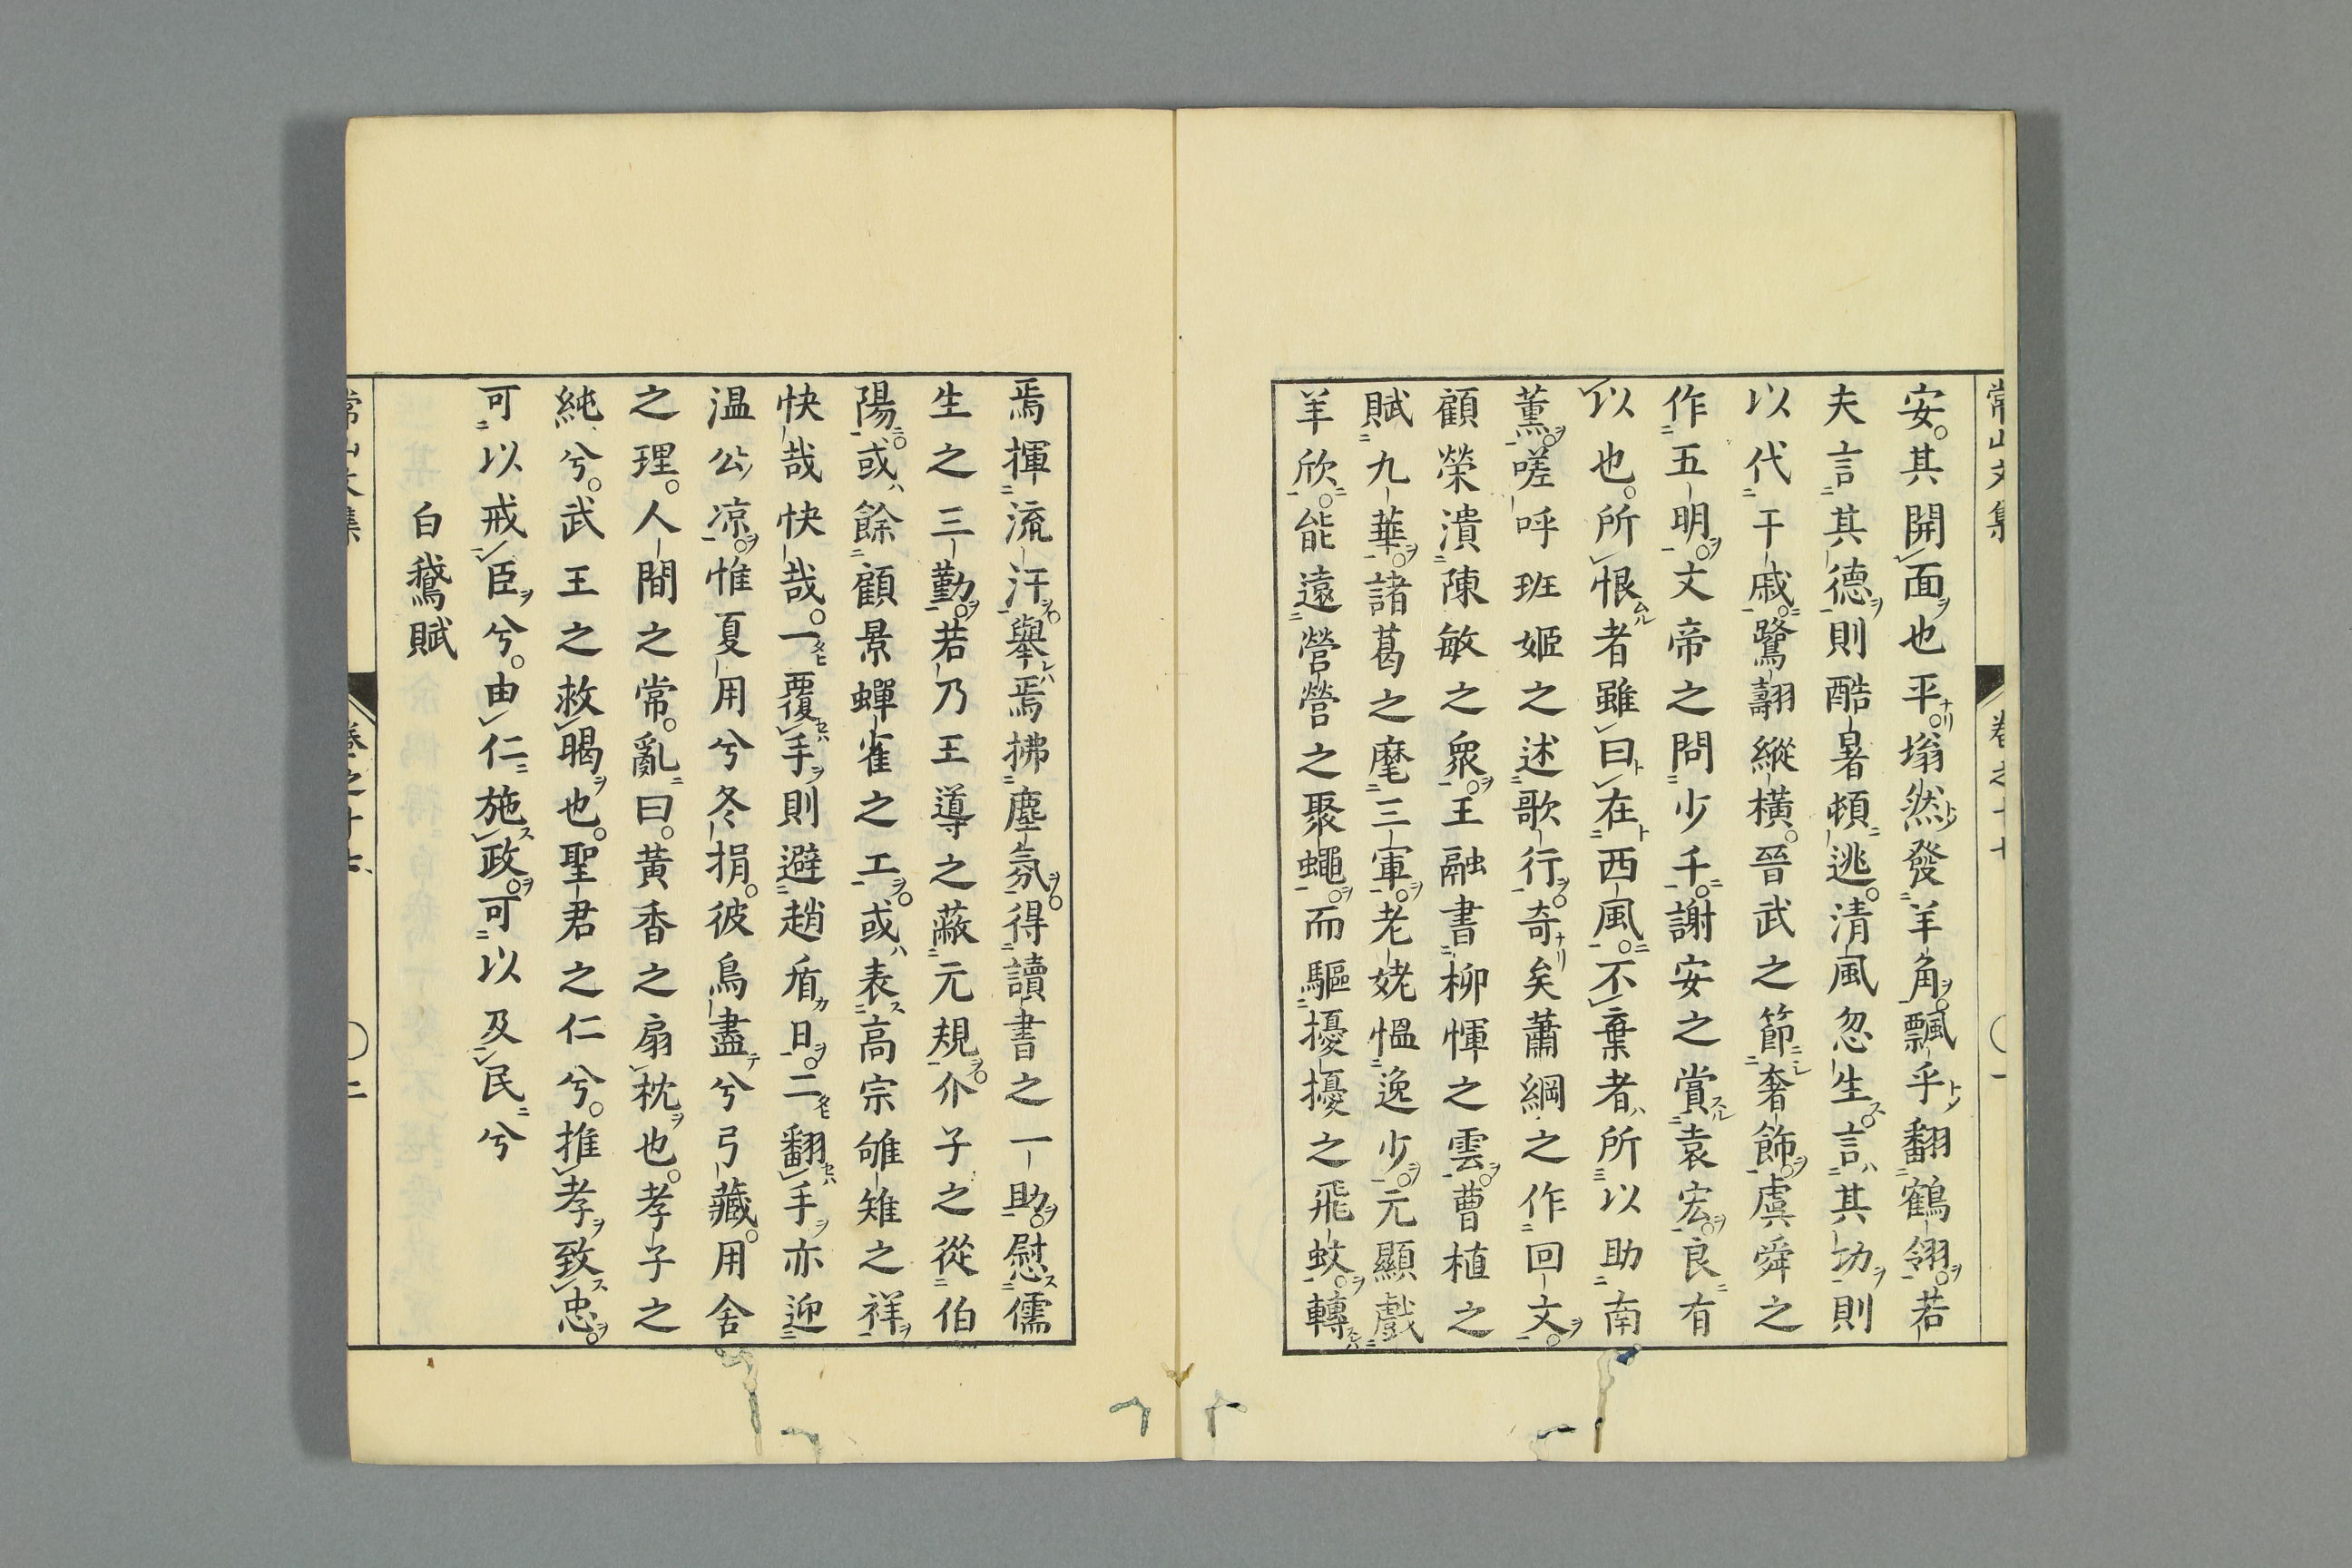 常山文集
卷之十七
一
安其開面也平塕然發羊角飄乎翻鶴翎若
夫言其德則酷暑頓逃清風忽生言其功則
以代干戚鷺翿縱橫晉武之節奢飾虞舜之
作五明文帝之問少千謝安之賞袁宏良有
以也所恨者雖曰在西風不棄者所以助南
薰嗟呼班姬之述歌行奇矣蕭綱之作回文
顧榮潰陳敏之衆王融書柳惲之雲曹植之
賦九華諸葛之麾三軍老姥慍逸少元顯戲
羊欣能遠營營之聚蠅而驅擾擾之飛蚊轉
焉揮流汗舉焉拂塵氛得讀書之一助慰儒
生之三勤若乃王導之蔽元規介子之從伯
陽或餘顧景蟬雀之工或表高宗雊雉之祥
快哉快哉一覆手則避趙盾日二翻手亦迎
温公凉惟夏用兮冬捐彼鳥盡兮弓藏用舍
之理人間之常亂曰黃香之扇枕也孝子之
純兮武王之救暍也聖君之仁兮推孝致忠
可以戒臣兮由仁施政可以及民兮
白鵞賦
常山文集
卷之十七
二